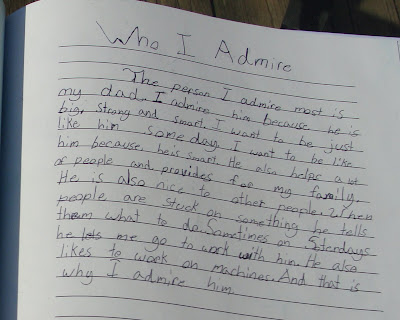 Who I Admire
The person I admire most is
my dad. I admire him because he is
big, strong and smart. I want to be just
like him some day. I want to be like
him because, he is smart. He also helps a lot
of people and provides for my family.
He is also nice to other people. When
people are stuck on something he tells
them what to do. Sometimes on Saterdays
he lets me go to work with him. He also
likes to work on machines. And that is
why I admire him